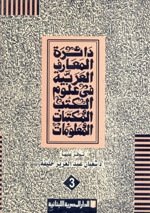 دائرة
المعارف
العربية
في علوم
الكتب
والمكتبات
والمعلومات
شعبان عبد العزيز خليفة
3
الدار المصرية اللبنانية